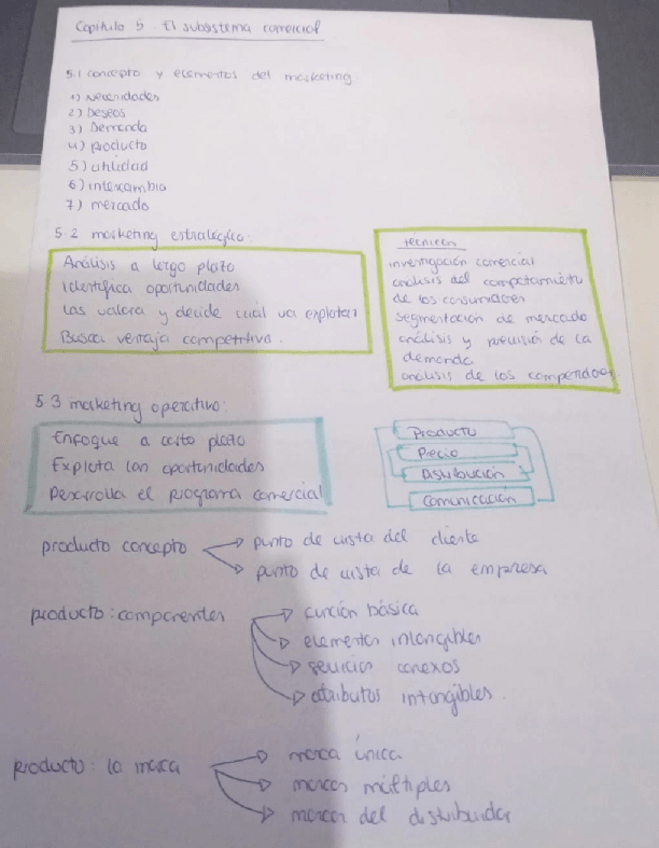 Capítulo 5. El subsistema comercial
5.1 concepto y elementos del marketing
1) Necesidades
2) Deseos
3) Demanda
4) producto
5) utilidad
6) intercambio
7) mercado
5.2 marketing estratégico:
Análisis a largo plazo
Identifica oportunidades
Las valora y decide cuál va explotar
Busca ventaja competitiva.
Técnicas
investigación comercial
análisis del comportamiento
de los consumidores
segmentación de mercado
análisis y previsión de la
demanda
análisis de los competidores
5.3 marketing operativo:
Enfoque a corto plazo
Explota las oportunidades
Desarrolla el programa comercial
Producto
Precio
Distribución
Comunicación
producto concepto
punto de vista del cliente
punto de vista de la empresa
producto: componentes
función básica
elementos intangibles
servicios conexos
atributos intangibles.
producto: la marca
marca única
marcas múltiples
marcas del distribuidor